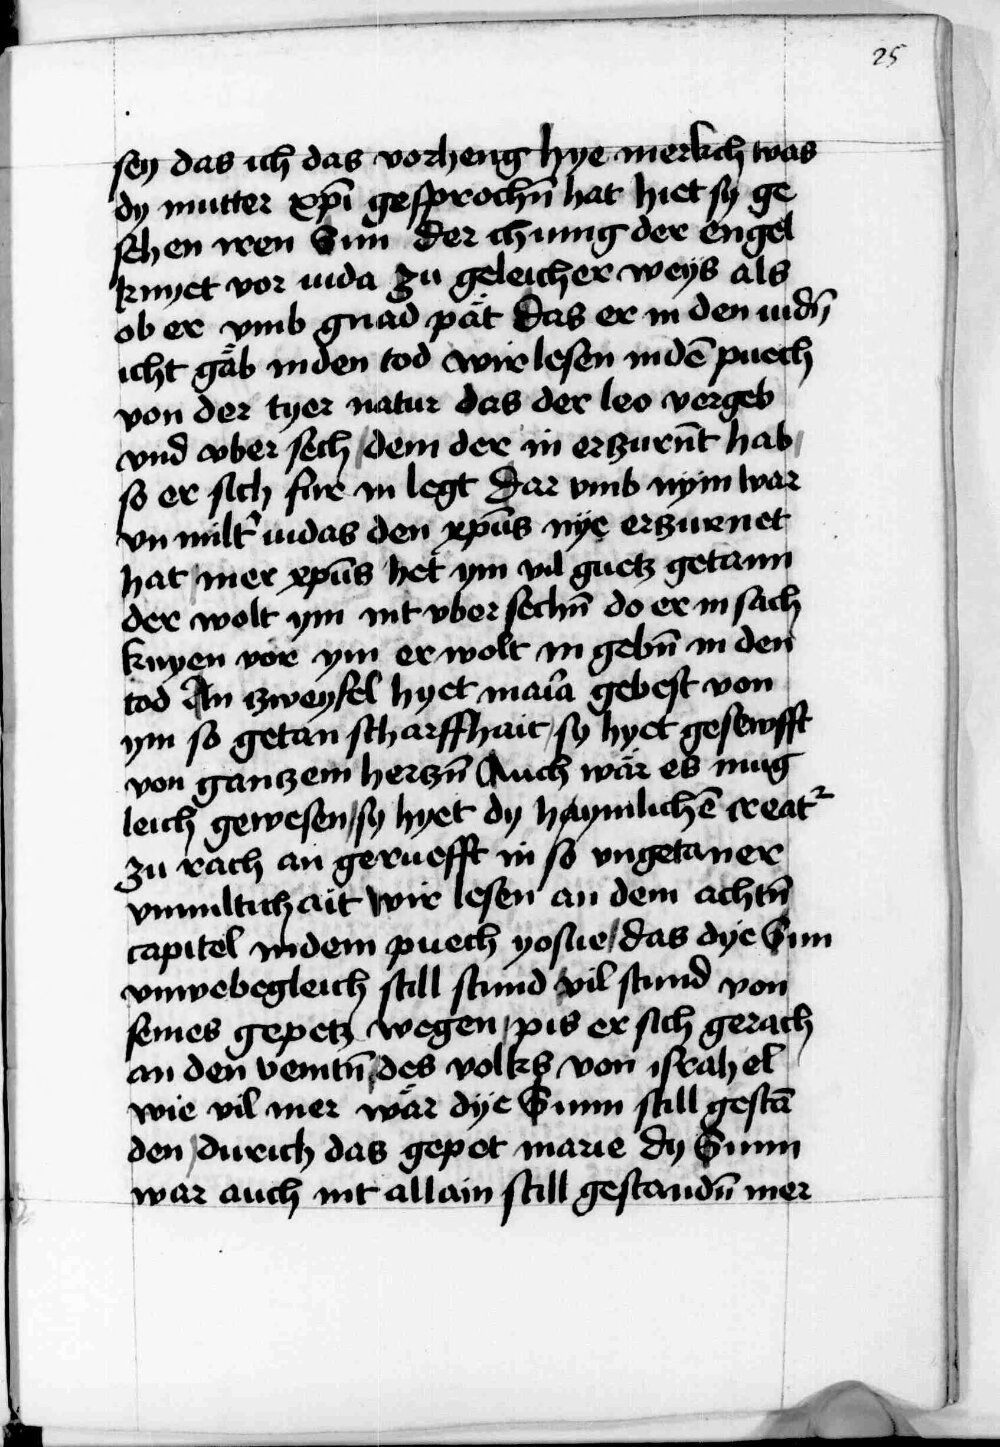 25
sey das ich das vorheng hye merkch was
dy mutter xpī gesprochn̄ hat hiet sy ge
sehen iren Sun der chunig der engel
knyet vor iuda zu geleicher weys als
ob er vmb gnad pät das er in den iudn̄
icht gäb in den tod wir lesen in dē puech
von der tyer natur das der leo vergeb
vnd vber sech / dem der in erzurn̄t hab /
so er sich fur in legt Dar vmb nym war
vn milt᷑ iudas den xp̄us nye erzurnet
hat / mer xp̄us het ym vil guetz getann
der wolt ym nit vber sechn̄ do er in sach
knyen vor ym er wolt in gebn̄ in den
tod An zweyfel hyet maīa gebest von
ym so getan scharffhait / sy hyet gesewfft
von gantzem hertzn̄ Auch wär es mug
leich gewesen / sy hyet dy haymlichē creat᷑
zu rach an geruefft in so vngetaner
vnmiltichait Wir lesen an dem achtn̄
capitel in dem puech yosue / das dye Sun
vnwebegleich still stund vil stund von
seines gepetz wegen / pis er sich gerach
an den veintn̄ des volks von israhel
wie vil mer wär dye Sunn still gestā
den / durich das gepet marie dy Sunn
war auch nit allain still gestandn̄ mer